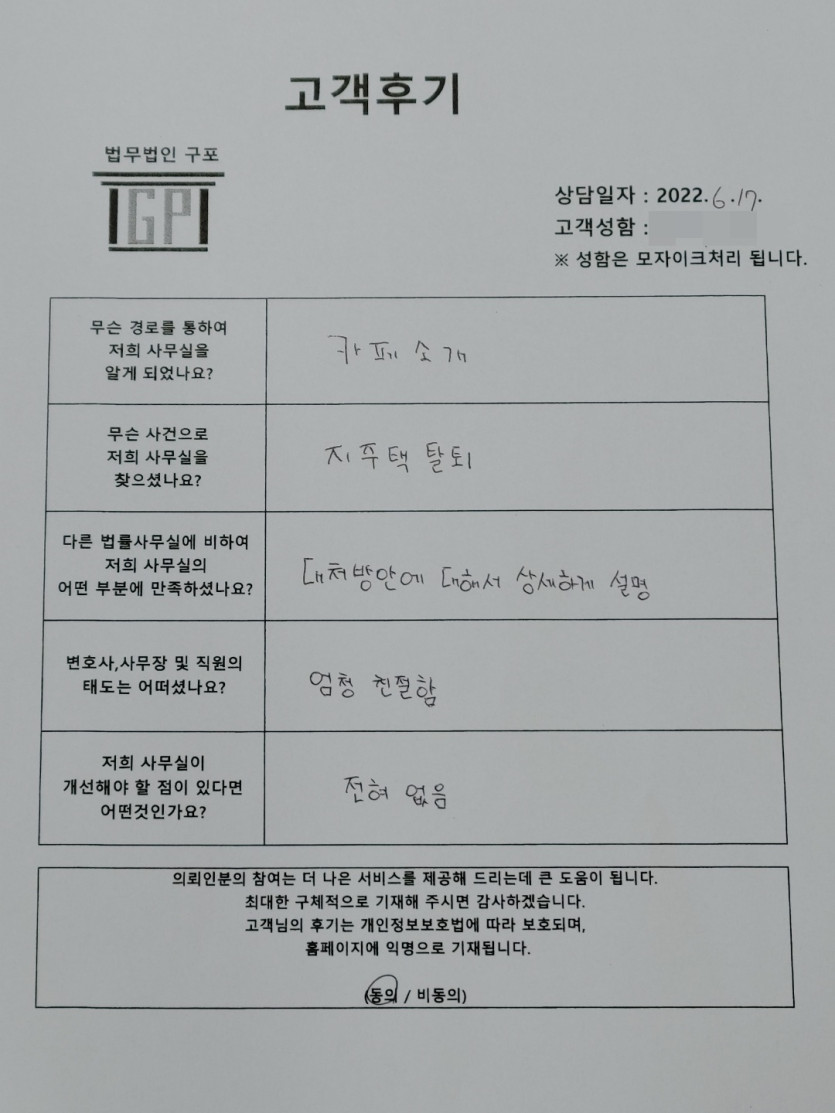 고객후기
법무법인 구포
GP
상담일자 : 2022.6.17.
고객성함 :
※ 성함은 모자이크처리 됩니다.
무슨 경로를 통하여
저희 사무실을
알게 되었나요?
카페소개
무슨 사건으로
저희 사무실을
찾으셨나요?
지주택 탈퇴
다른 법률사무실에 비하여
저희 사무실의
어떤 부분에 만족하셨나요?
대처방안에 대해서 상세하게 설명
변호사,사무장 및 직원의
태도는 어떠셨나요?
엄청 친절함
저희 사무실이
개선해야 할 점이 있다면
어떤것인가요?
전혀 없음
의뢰인분의 참여는 더 나은 서비스를 제공해 드리는데 큰 도움이 됩니다.
최대한 구체적으로 기재해 주시면 감사하겠습니다.
고객님의 후기는 개인정보보호법에 따라 보호되며,
홈페이지에 익명으로 기재됩니다.
(동의 / 비동의)